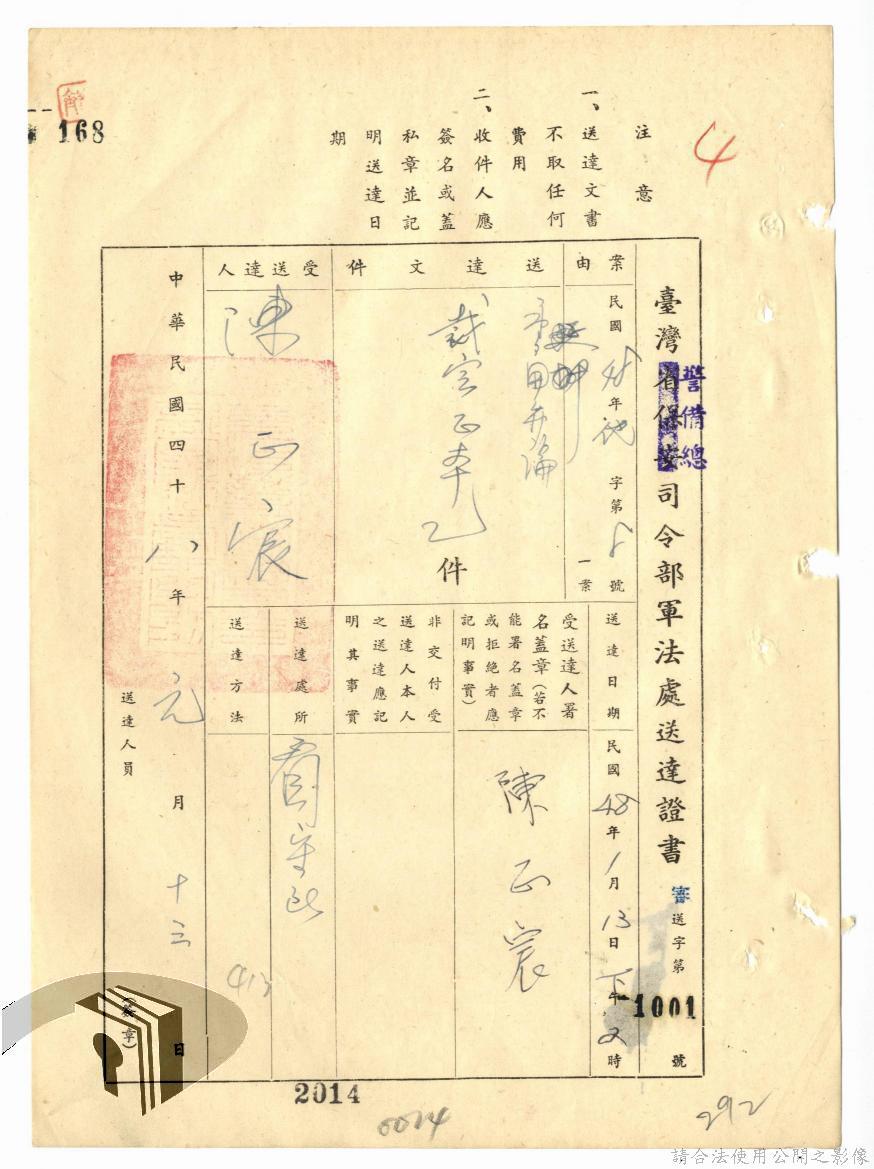 168
4
注意
一、送達文書
不取任何
費用
二、收件人應
簽名或蓋
私章並記
明送達日
期
臺灣省保安司令部軍法處送達證書
警備總
審送字第1001號
案由
民國 年 字第 號
一案
送達文件
裁定正本乙件
受送達人
陳正宸
送達日期
民國48年1月13日下午 時
受送達人署
名蓋章(若不
能署名蓋章
或拒絕者應
記明事實)
陳正宸
非交付受
送達人本人
之送達應記
明其事實
送達處所
看守所
送達方法
中華民國四十八年元月十三日
送達人員
(簽章)
2014
0024
292
請合法使用公開之影像